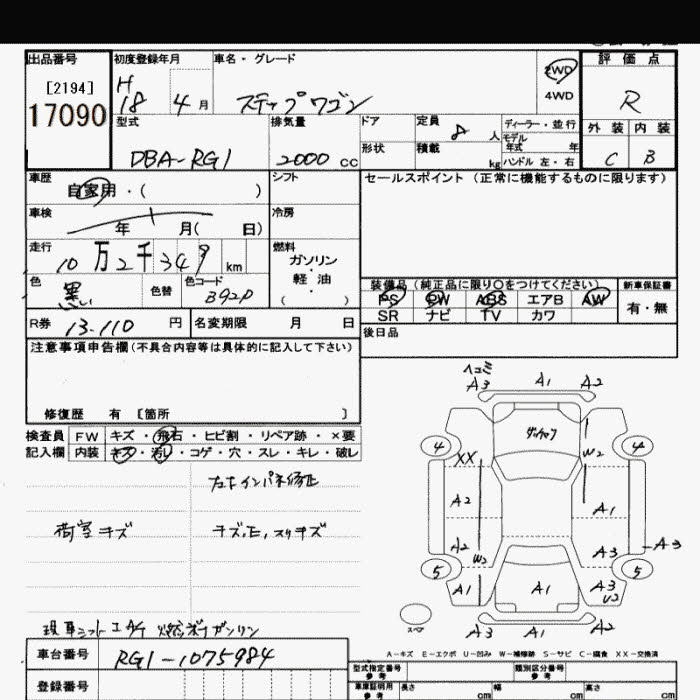 出品番号 初度登録年月 車名・グレード 2WD 評価点
[2194] H 4WD R
17090 18 4月 ステップワゴン
型式 排気量 ドア 定員 8人 ディーラー・並行 外装 内装
モデル年式 年
DBA-RG1 2000cc 形状 積載 kg ハンドル 左・右 C B
車歴 シフト セールスポイント(正常に機能するものに限ります)
自家用・( )
車検 冷房
年 月( 日)
走行 燃料
10万2千349km ガソリン・軽油・( )
色 色替 色コード 装備品(純正品に限り○をつけてください) 新車保証書
黒 B92P PS PW ABS エアB AW 有・無
SR ナビ TV カワ
R券 13.110円 名変期限 月 日 後日品
注意事項申告欄(不具合内容等は具体的に記入して下さい)
修復歴 有 [箇所 ]
検査員 FW キズ・飛石・ヒビ割・リペア跡・×要
記入欄 内装 キズ・汚レ・コゲ・穴・スレ・キレ・破レ
右インパネ修正
荷室キズ
ヘコミ
A3 A1 A2
4 4
XX W2
A2 A1
A2 W2 A3 A3
5 5
A1 A1 A3
U2
スペア
A3 A1 A2
A-キズ E-エクボ U-凹み W-補修跡 S-サビ C-腐食 XX-交換済
車台番号 RG1-1075984
型式指定番号 参考 類別区分番号 参考
登録番号 車庫証明用 参考 長さ cm 幅 cm 高さ cm